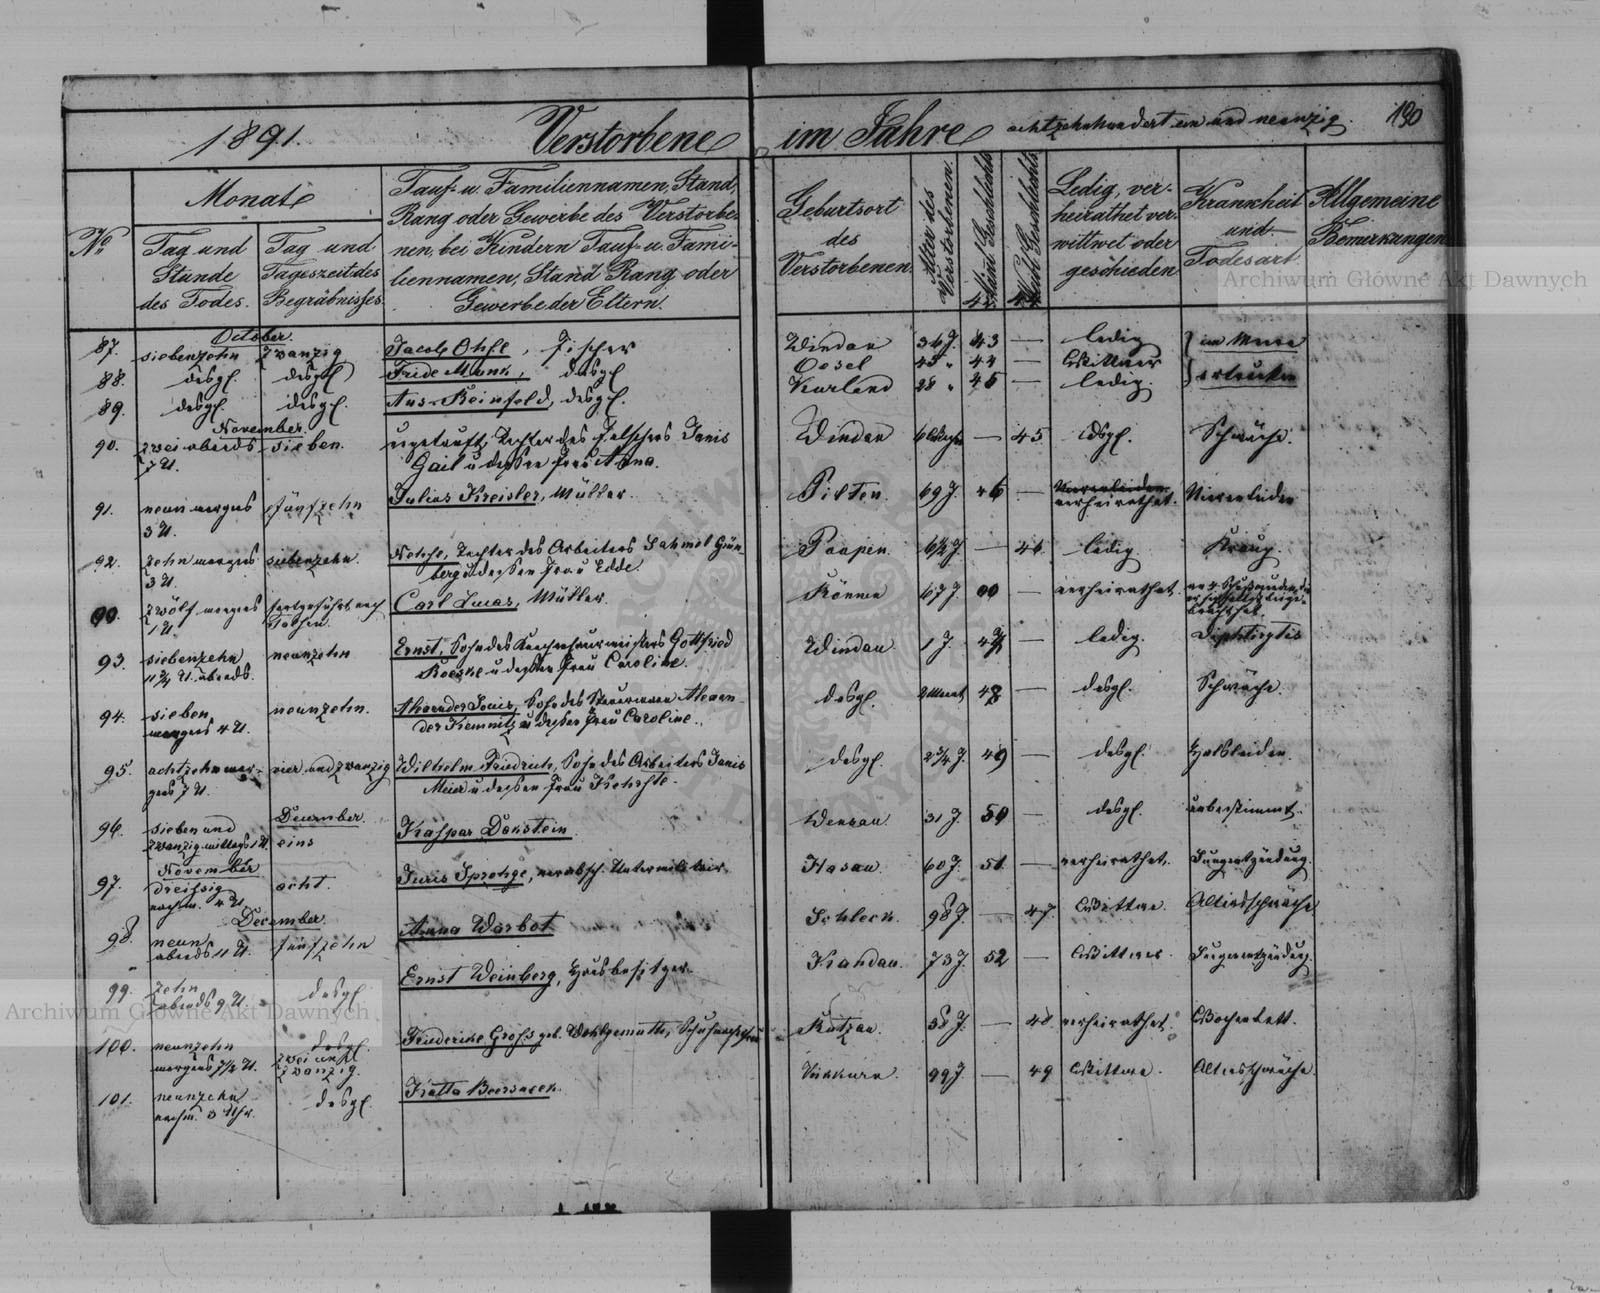 1891.
Verstorbene im Jahre achtzehnhundert ein und neunzig.
190
No
Monat
Tag und
Stunde
des Todes.
Tag und
Tageszeit des
Begräbnisses
Tauf- u. Familiennamen, Stand,
Rang oder Gewerbe des Verstorbe-
nen, bei Kindern Tauf- u. Fami-
liennamen, Stand Rang oder
Gewerbe der Eltern.
Geburtsort
des
Verstorbenen.
Alter des
Verstorbenen.
Männl. Geschlechts
42
Weibl. Geschlechts
44
Ledig, ver-
heirathet ver-
wittwet oder
geschieden
Krankheit
und
Todesart
Allgemeine
Bemerkungen
Archiwum Główne Akt Dawnych
October.
87. siebenzehn zwanzig Jacob Ohfe, Fischer Windau 34 J. 43 — ledig } im Meere
88. desgl. desgl. Fride Munk, desgl Oesel 45 " 44 — Wittwer
89. desgl. desgl. Ans Reinfeld, desgl. Kurland 28 " 45 — ledig. } ertrunken
November.
90. zwei abends sieben. ungetauft, Tochter des Janis Windau — 45 desgl. Schwäche.
7 U. Gail u dessen Frau Anna.
91. neun morgens fünfzehn Julius Kreisler, Müller. Pilten 69 J. 46 — verheirathet. Nierenleiden
3 U.
92. zehn morgens siebenzehn. Tochter des Arbeiters Grün- Paapen 6½ J. — 46 ledig Kroup.
3 U. berg u dessen Frau Edde.
00. zwölf morgens fortgeführt nach Carl Lucas, Müller Rönnen 67 J. 00 — verheirathet
1 U.
93. siebenzehn neunzehn Ernst, Sohn des Gottfried Windau 1 J. 47 — ledig. Diphtiritis
11¾ U. abends. u dessen Frau Caroline.
94. sieben neunzehn. Alexander Louis, Sohn des Steuermann Alexan- desgl. 2 Monat 48 — desgl. Schwäche.
morgens 4 U. der Kemnitz u dessen Frau Caroline.
95. achtzehn mor- vier und zwanzig Wilhelm Friedrich, Sohn des Arbeiters Janis desgl. 2¾ J. 49 — desgl. Halsleiden
gens 7 U. Meier u dessen Frau
December.
96. sieben und eins Kaspar Donstein 31 J. 50 — desgl. unbestimmt.
zwanzig mittags 1 U
November
97. dreissig acht. Juris Sprohge, verabsch. Untermilitair. Hasau 60 J. 51 — verheirathet. Lungenentzündung.
nachm. 4 U.
December
98. neun fünfzehn Anna Warbot Schleck. 98 J. — 47. Wittwe. Altersschwäche
abends 11 U.
99. zehn desgl. Ernst Weinberg, Hausbesitzer Kandau. 73 J. 52 — Wittwer. Lungenentzündung.
abends 9 U.
Archiwum Główne Akt Dawnych
100. neunzehn desgl. Friederike Grohs geb. Wohlgemuth, 38 J. — 48 verheirathet. Wochenbett.
morgens 7½ U. zwei und
zwanzig.
101. neunzehn desgl. Katta 99 J. — 49 Wittwe. Altersschwäche
nachm. 3 Uhr.